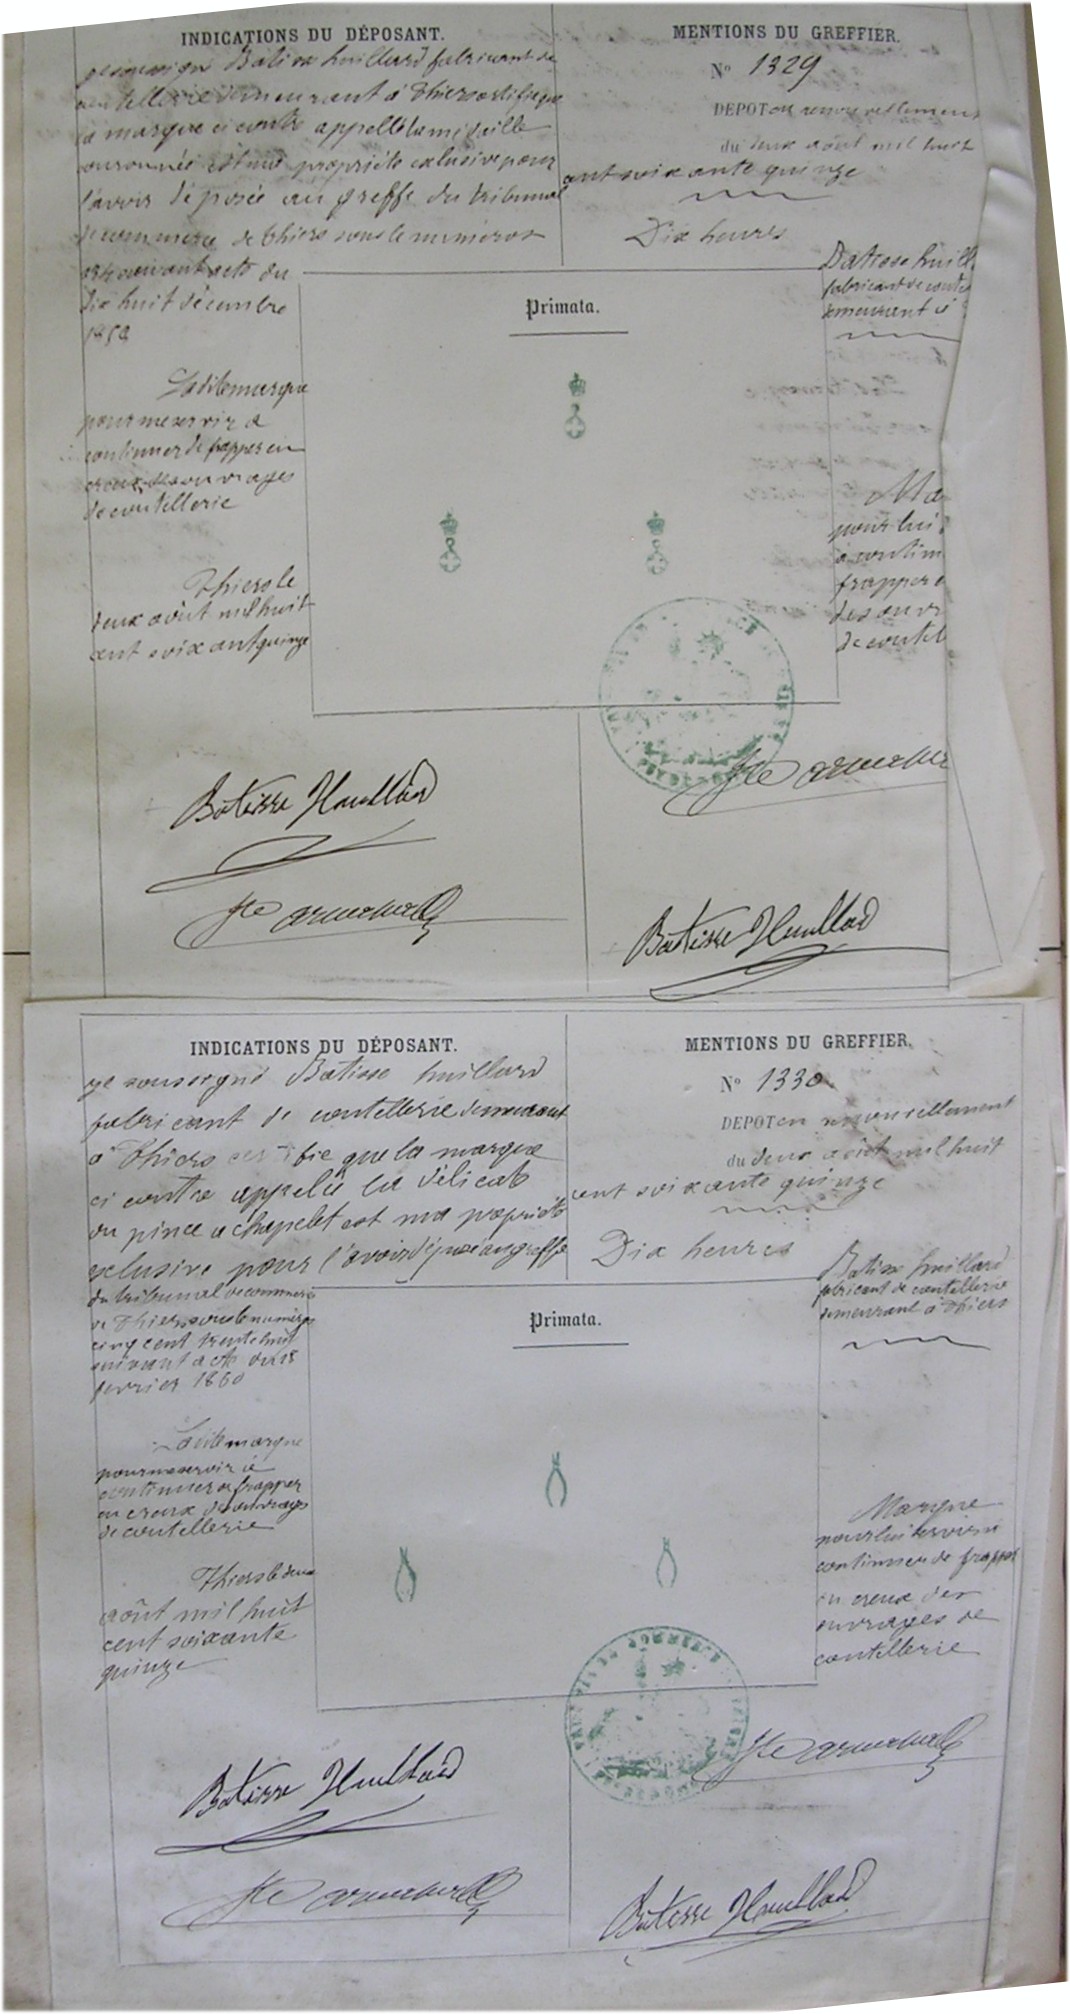 INDICATIONS DU DÉPOSANT.
je soussigné Batisse huillard fabricant de
coutellerie demeurant à Thiers certifie que
la marque ci contre appellé la médaille
couronnée est ma propriété exclusive pour
l'avoir déposée au greffe du tribunal
de commerce de thiers sous le numéros
suivant acte du
dix huit décembre
Ladite marque
pour me servir a
continuer de frapper en
creux des ouvrages
de coutellerie
Thiers le
deux août mil huit
cent soixante quinze
MENTIONS DU GREFFIER.
No 1329
DEPOT en renouvellement
du deux août mil huit
cent soixante quinze
Dix heures
Batisse huill
fabricant de coute
demeurant à
Primata.
Ma
pour lui
à contin
frapper e
des ouvr
de coutel
Batisse Huillard
Batisse Huillard
INDICATIONS DU DÉPOSANT.
je soussigné Batisse huillard
fabricant de coutellerie demeurant
à Thiers certifie que la marque
ci contre appelée la délicate
ou pince a chapelet est ma propriété
exclusive pour l'avoir déposé au greffe
du tribunal de commerce
de Thiers sous le numéros
cinq cent trente huit
suivant acte du 18
fevrier 1860
Ladite marque
pour me servir à
continuer de frapper
en creux des ouvrages
de coutellerie
Thiers le deux
août mil huit
cent soixante
quinze
MENTIONS DU GREFFIER.
No 1330
DEPOT en renouvellement
du deux août mil huit
cent soixante quinze
Dix heures
Batisse huillard
fabricant de coutellerie
demeurant à Thiers
Primata.
Marque
pour lui servir à
continuer de frapper
en creux des
ouvrages de
coutellerie
Batisse Huillard
Batisse Huillard